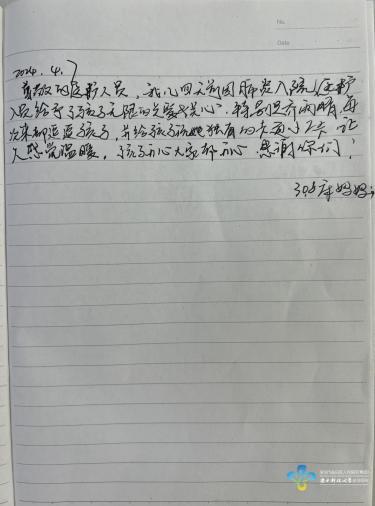 No.
Date
2024.4.7
尊敬的医护人员，我儿四天前因肺炎入院，医护
人员给予了孩子无限的关爱与关心，特别是乔雨晴，每
次来都逗逗孩子，并给孩子说她独有的
人感觉温暖，孩子开心大家都开心 感谢你们！
308床妈妈